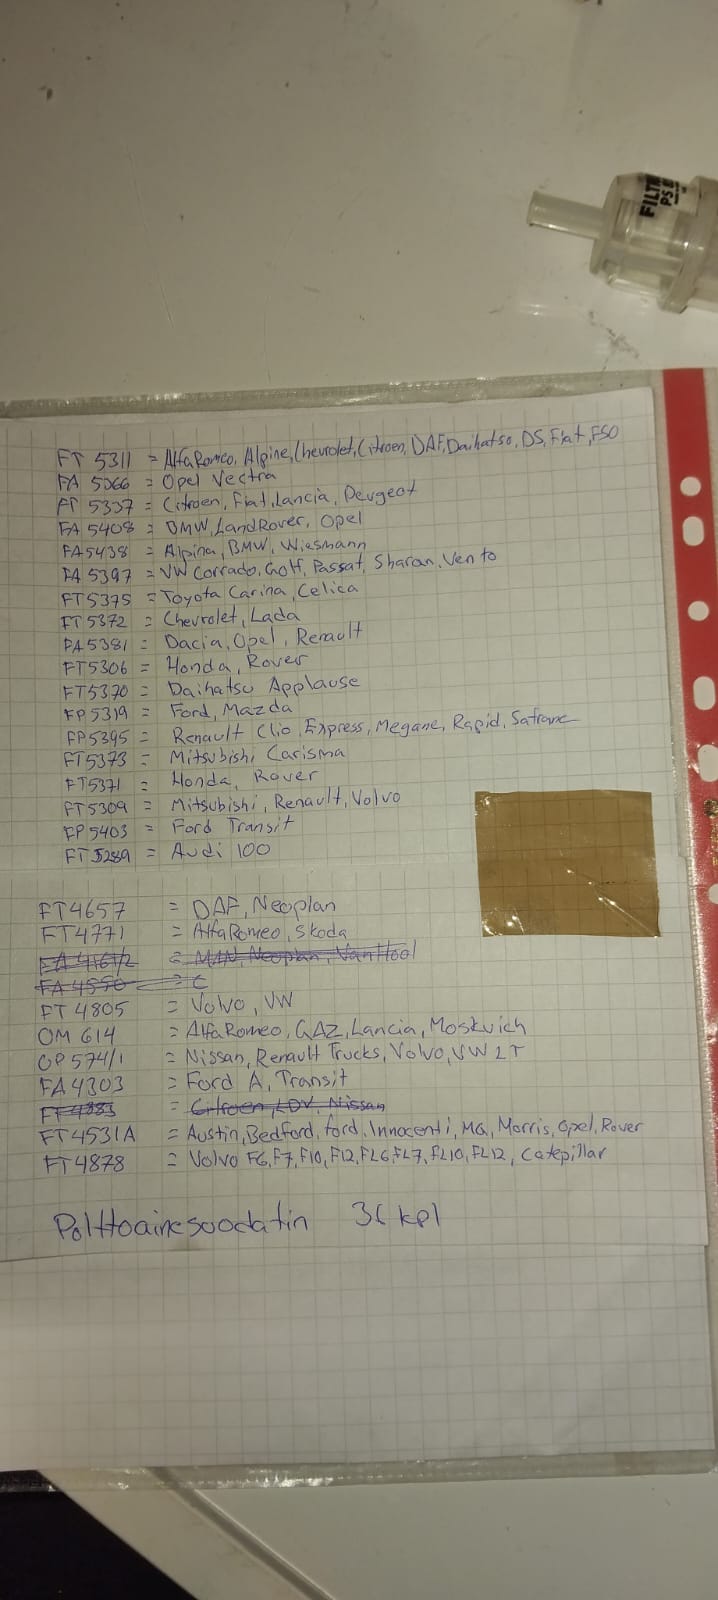 FILT
PS 8
FT 5311 = AlfaRomeo, Alpine, Chevrolet, Citroen, DAF, Daihatso, DS, Fiat, FSO
FA 5066 = Opel Vectra
FT 5337 = Citroen, Fiat, Lancia, Peugeot
FA 5408 = BMW, LandRover, Opel
FA5438 = Alpina, BMW, Wiesmann
FA 5397 = VW Corrado, Golf, Passat, Sharan, Vento
FT5375 = Toyota Carina, Celica
FT 5372 = Chevrolet, Lada
FA5381 = Dacia, Opel, Renault
FT5306 = Honda, Rover
FT5370 = Daihatsu Applause
FP5319 = Ford, Mazda
FP5395 = Renault Clio, Express, Megane, Rapid, Safrane
FT5373 = Mitsubishi Carisma
FT5371 = Honda, Rover
FT5309 = Mitsubishi, Renault, Volvo
FP5403 = Ford Transit
FT5289 = Audi 100
FT4657 = DAF, Neoplan
FT4771 = AlfaRomeo, Skoda
FA 4161/2 = MAN, Neoplan, VanHool
FA 4550 = C
FT 4805 = Volvo, VW
OM 614 = AlfaRomeo, GAZ, Lancia, Moskvich
OP574/1 = Nissan, Renault Trucks, Volvo, VW LT
FA4303 = Ford A, Transit
FT4883 = Citroen, LDV, Nissan
FT4531A = Austin, Bedford, Ford, Innocenti, MG, Morris, Opel, Rover
FT4878 = Volvo F6, F7, F10, F12, FL6, FL7, FL10, FL12, Catepillar
Polttoainesuodatin 36 kpl